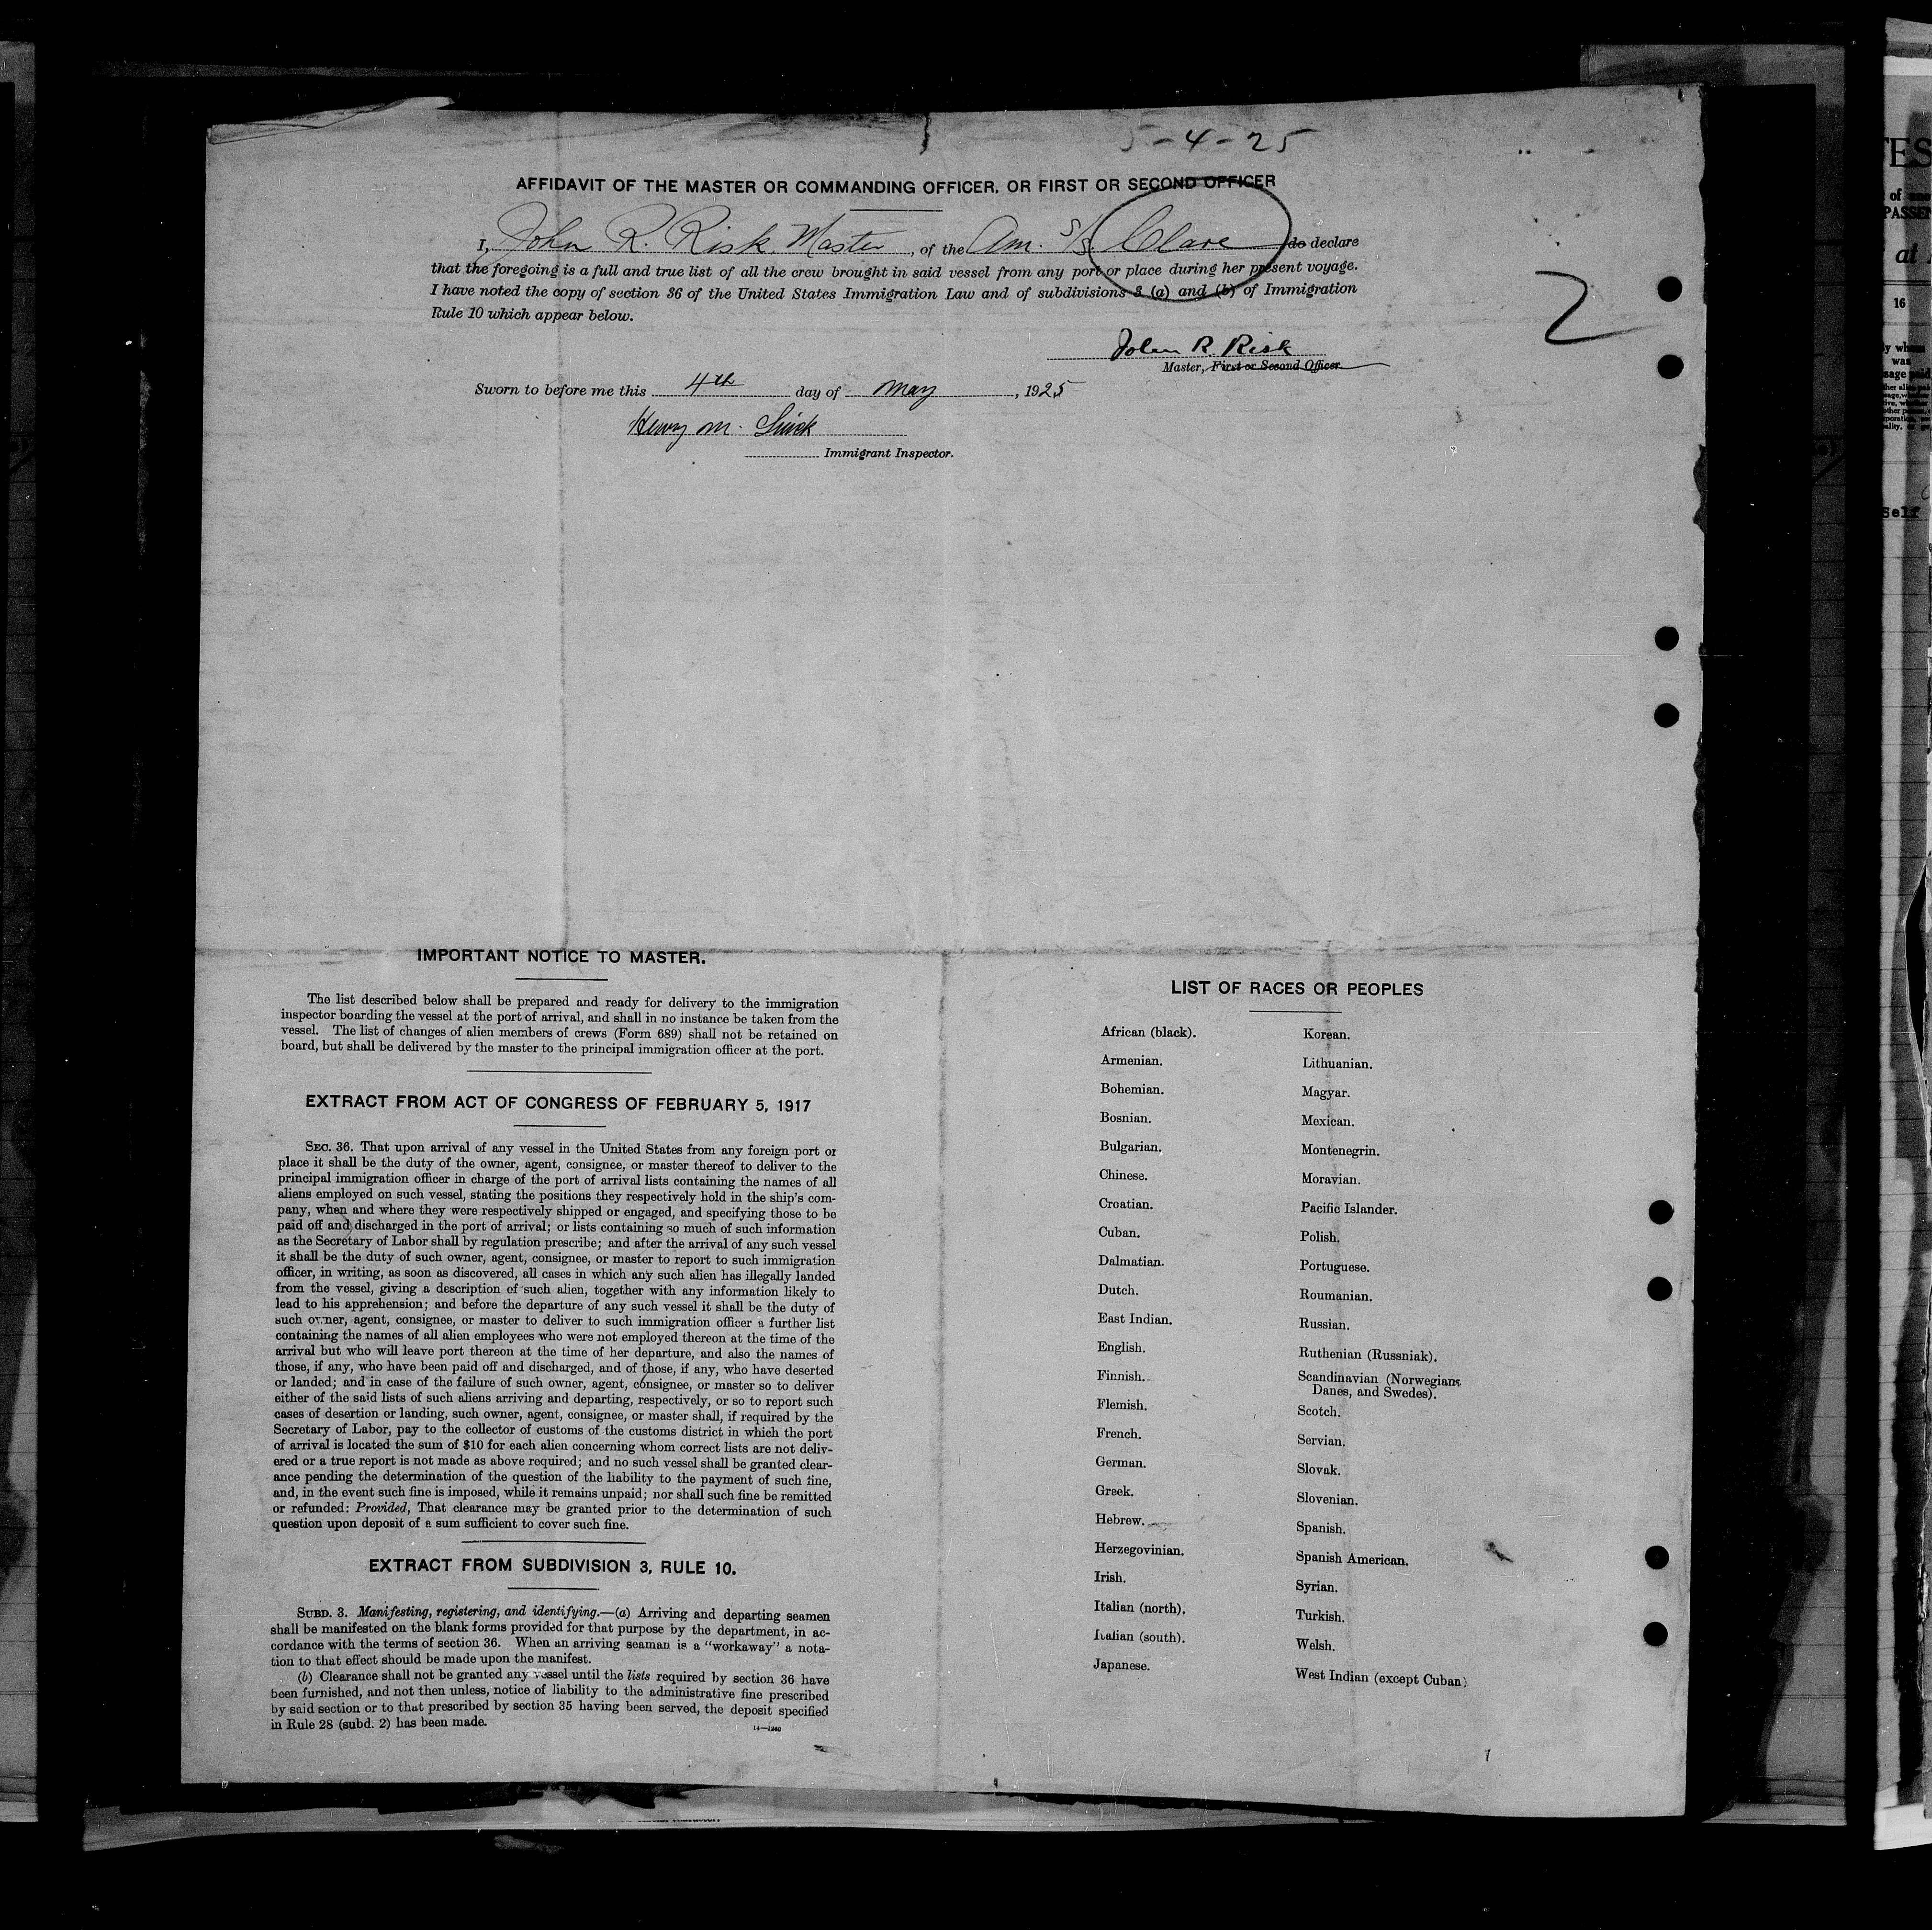 5-4-25
AFFIDAVIT OF THE MASTER OR COMMANDING OFFICER, OR FIRST OR SECOND OFFICER
I, John R. Risk Master, of the Am. S/S. Clare do declare
that the foregoing is a full and true list of all the crew brought in said vessel from any port or place during her present voyage.
I have noted the copy of section 36 of the United States Immigration Law and of subdivisions 3 (a) and (b) of Immigration
Rule 10 which appear below.
2
John R. Risk
Master, First or Second Officer
Sworn to before me this 4th day of May, 1925
Henry M.
Immigrant Inspector.
IMPORTANT NOTICE TO MASTER.
The list described below shall be prepared and ready for delivery to the immigration
inspector boarding the vessel at the port of arrival, and shall in no instance be taken from the
vessel. The list of changes of alien members of crews (Form 689) shall not be retained on
board, but shall be delivered by the master to the principal immigration officer at the port.
EXTRACT FROM ACT OF CONGRESS OF FEBRUARY 5, 1917
SEC. 36. That upon arrival of any vessel in the United States from any foreign port or
place it shall be the duty of the owner, agent, consignee, or master thereof to deliver to the
principal immigration officer in charge of the port of arrival lists containing the names of all
aliens employed on such vessel, stating the positions they respectively hold in the ship's com-
pany, when and where they were respectively shipped or engaged, and specifying those to be
paid off and discharged in the port of arrival; or lists containing so much of such information
as the Secretary of Labor shall by regulation prescribe; and after the arrival of any such vessel
it shall be the duty of such owner, agent, consignee, or master to report to such immigration
officer, in writing, as soon as discovered, all cases in which any such alien has illegally landed
from the vessel, giving a description of such alien, together with any information likely to
lead to his apprehension; and before the departure of any such vessel it shall be the duty of
such owner, agent, consignee, or master to deliver to such immigration officer a further list
containing the names of all alien employees who were not employed thereon at the time of the
arrival but who will leave port thereon at the time of her departure, and also the names of
those, if any, who have been paid off and discharged, and of those, if any, who have deserted
or landed; and in case of the failure of such owner, agent, consignee, or master so to deliver
either of the said lists of such aliens arriving and departing, respectively, or so to report such
cases of desertion or landing, such owner, agent, consignee, or master shall, if required by the
Secretary of Labor, pay to the collector of customs of the customs district in which the port
of arrival is located the sum of $10 for each alien concerning whom correct lists are not deliv-
ered or a true report is not made as above required; and no such vessel shall be granted clear-
ance pending the determination of the question of the liability to the payment of such fine,
and, in the event such fine is imposed, while it remains unpaid; nor shall such fine be remitted
or refunded: Provided, That clearance may be granted prior to the determination of such
question upon deposit of a sum sufficient to cover such fine.
EXTRACT FROM SUBDIVISION 3, RULE 10.
SUBD. 3. Manifesting, registering, and identifying.—(a) Arriving and departing seamen
shall be manifested on the blank forms provided for that purpose by the department, in ac-
cordance with the terms of section 36. When an arriving seaman is a "workaway" a nota-
tion to that effect should be made upon the manifest.
(b) Clearance shall not be granted any vessel until the lists required by section 36 have
been furnished, and not then unless, notice of liability to the administrative fine prescribed
by said section or to that prescribed by section 35 having been served, the deposit specified
in Rule 28 (subd. 2) has been made.
LIST OF RACES OR PEOPLES
African (black).
Armenian.
Bohemian.
Bosnian.
Bulgarian.
Chinese.
Croatian.
Cuban.
Dalmatian.
Dutch.
East Indian.
English.
Finnish.
Flemish.
French.
German.
Greek.
Hebrew.
Herzegovinian.
Irish.
Italian (north).
Italian (south).
Japanese.
Korean.
Lithuanian.
Magyar.
Mexican.
Montenegrin.
Moravian.
Pacific Islander.
Polish.
Portuguese.
Roumanian.
Russian.
Ruthenian (Russniak).
Scandinavian (Norwegians,
Danes, and Swedes).
Scotch.
Servian.
Slovak.
Slovenian.
Spanish.
Spanish American.
Syrian.
Turkish.
Welsh.
West Indian (except Cuban)